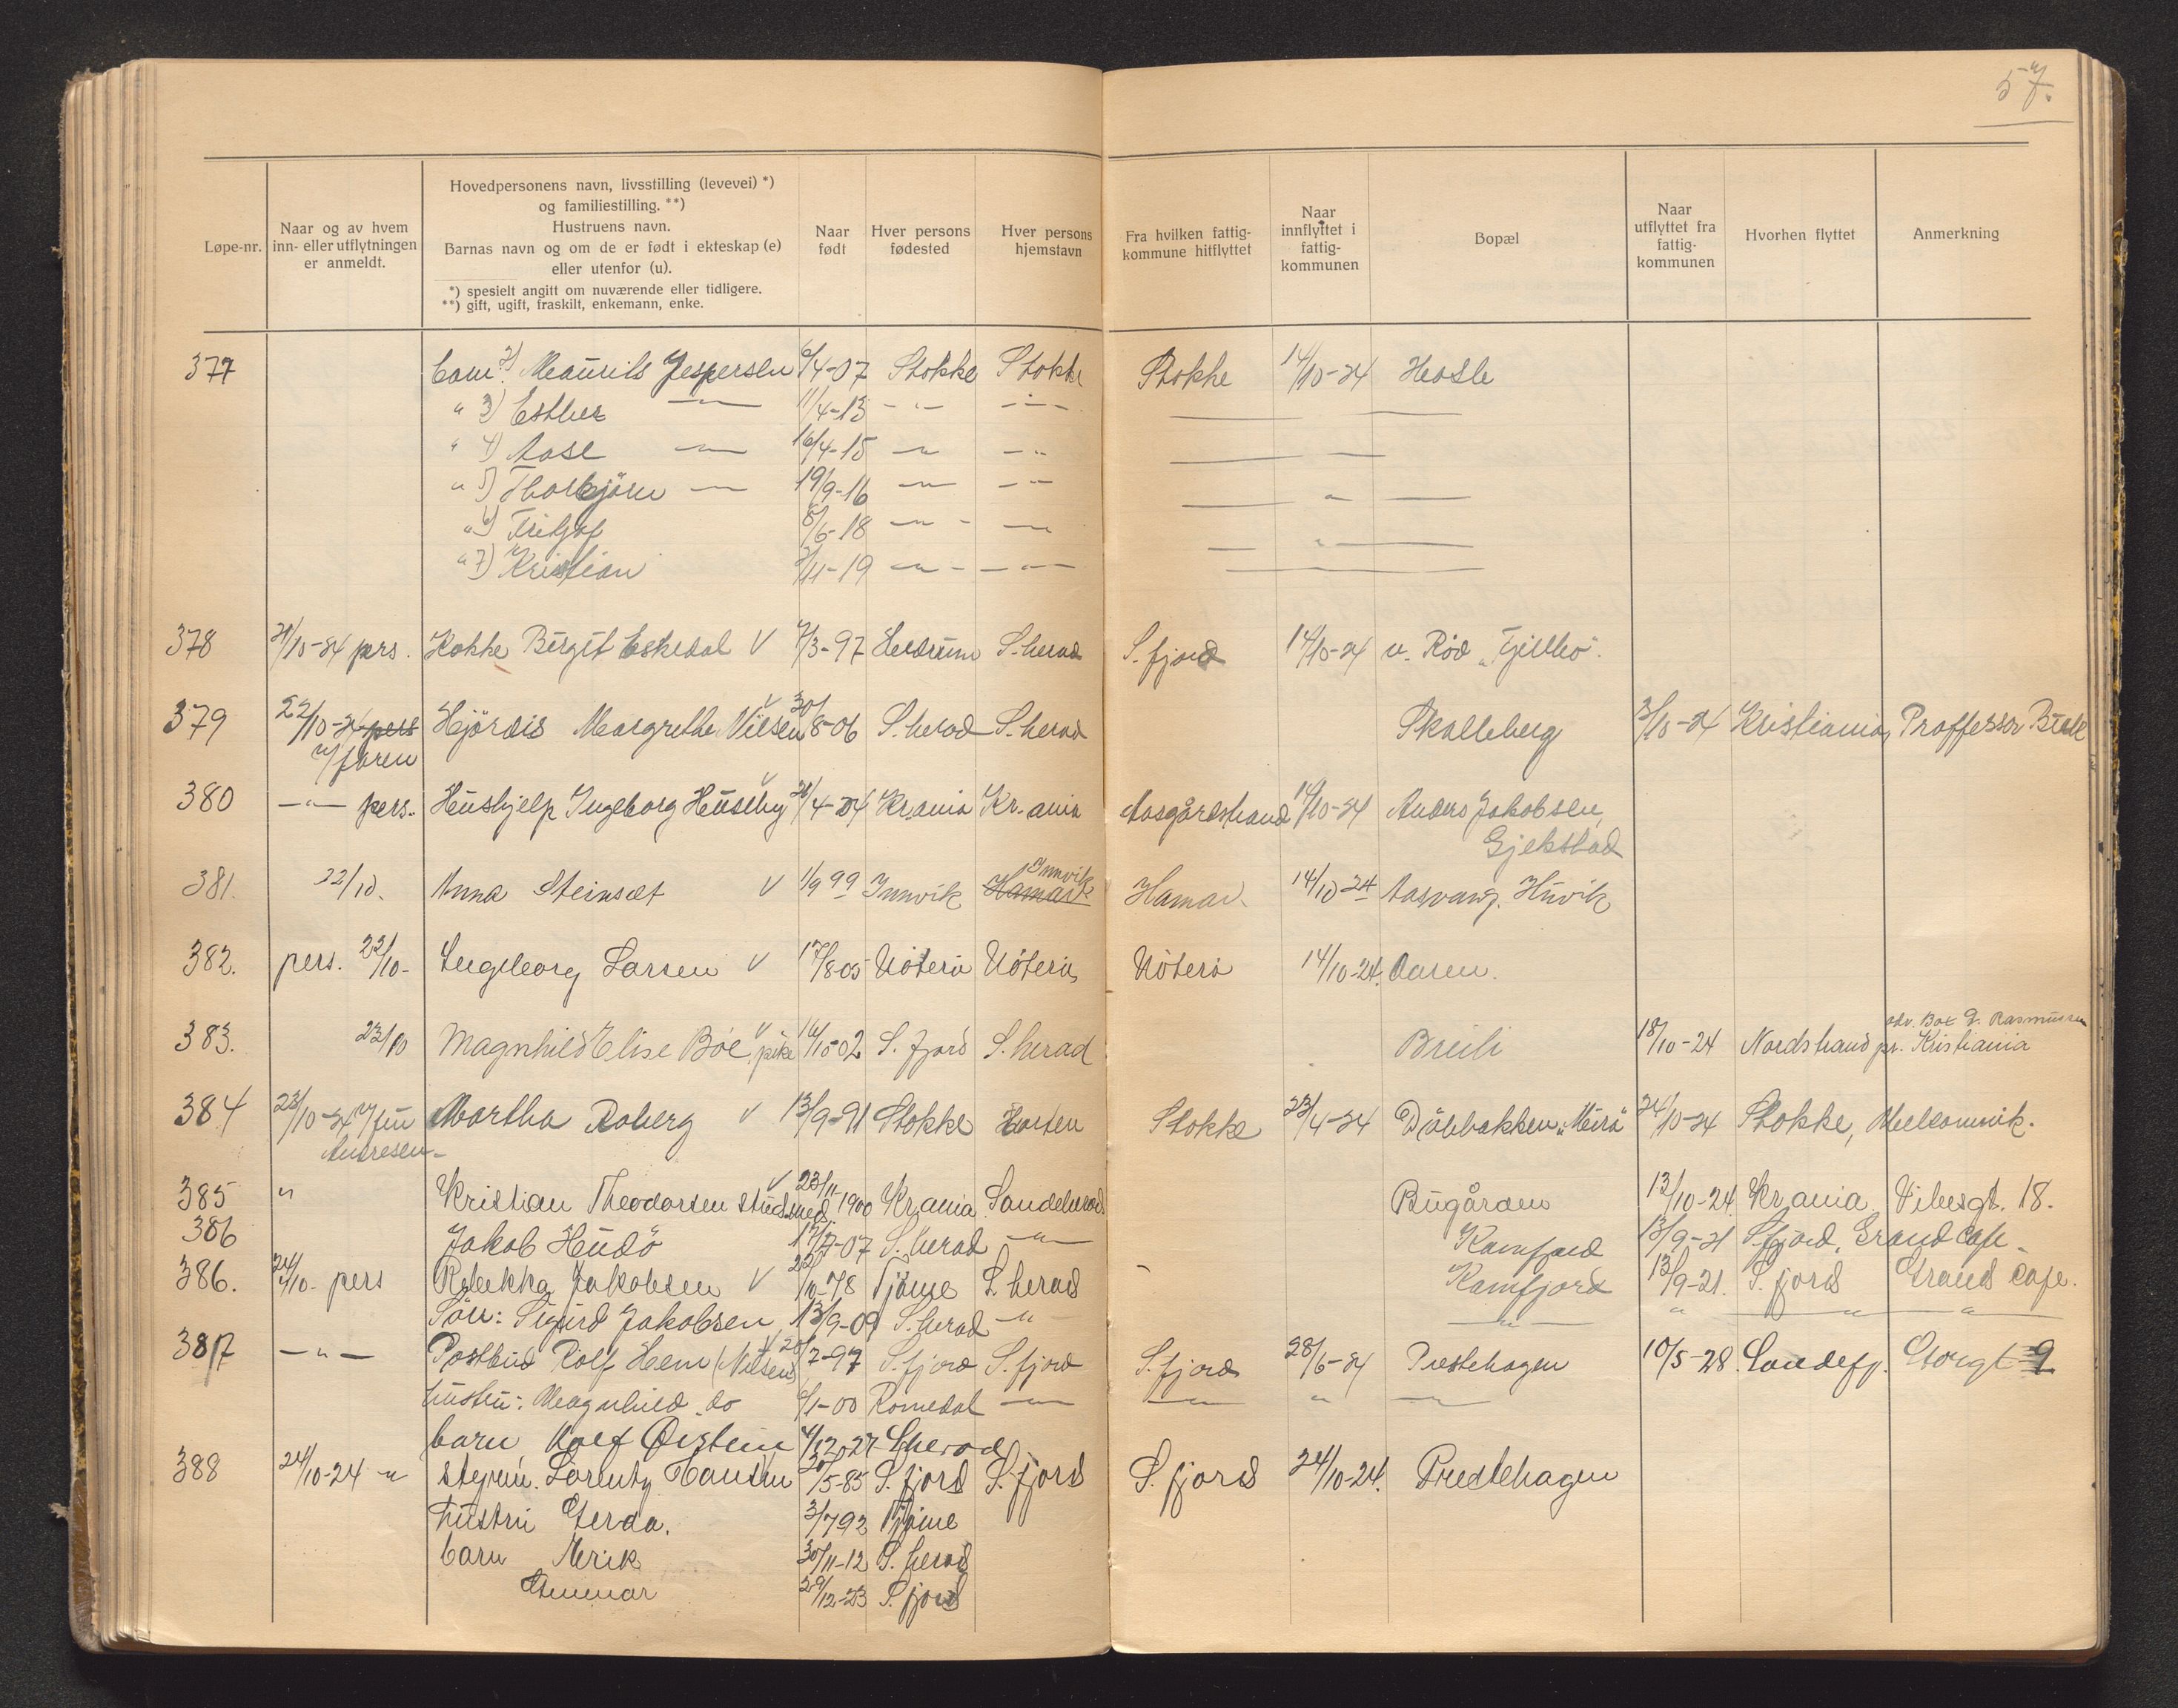 57.
Løpe-nr.
Naar og av hvem inn- eller utflytningen er anmeldt.
Hovedpersonens navn, livsstilling (levevei) *) og familiestilling. **)
Hustruens navn.
Barnas navn og om de er født i ekteskap (e) eller utenfor (u).
*) spesielt angitt om nuværende eller tidligere.
**) gift, ugift, fraskilt, enkemann, enke.
Naar født
Hver persons fødested
Hver persons hjemstavn
Fra hvilken fattigkommune hitflyttet
Naar innflyttet i fattigkommunen
Bopæl
Naar utflyttet fra fattigkommunen
Hvorhen flyttet
Anmerkning
377 barn 2) Maurits Jespersen 6/4-07 Stokke Stokke Stokke 14/10-24 Hasle
" 3) Esther —"— 11/4-13 -"- -"-
" 4) Aase —"— 16/4-15 —"— —"
" 5) Thorbjörn —"— 19/9-16 —"— —"—
" 6) Fritjof 8/6-18 —"— —"—
" 7) Kristian /11-19 —"— —"—
378 21/10-24 pers. Kokke Birgit Eskedal V 7/3-97 Hedrum S. herad S. fjord 14/10-24 v. Rød "Fjellbo".
379 22/10-24 pers v/ faren Hjördis Margrethe Nilsen V 30/8-06 S. herad S. herad Skalleberg 3/10-24 Kristiania, Proffessor
380 —"— pers. Hushjelp Ingeborg Huseby V /4-04 Kr.ania Kr.ania Aasgårdstrand 14/10-24 Anders Jakobsen, Gjekstad
381. 22/10. Anna Steinset V 1/9 99 Innvik Hamar Innvik Hamar. 14/10-24 Aasvang. Huvik
382. pers. 22/10- Ingeborg Larsen V 17/8-05 Nöterö Nöterö Nöterö 14/10-24. Aasen.
383. 23/10 Magnhild Elise Böe V pike 16/10-02 S. fjord S. herad Breili 18/10-24 Nordstrand pr. Kristiania adv. Box G. Rasmussen
384 23/10-24 v/ fru Andresen- Martha Roberg V 13/9-91 Stokke Horten Stokke Dölebakken "Meirö" 24/10-24 Stokke, Melsomvik.
385 " Kristian Theodorsen stud.med. V 23/11-1900 Kr.ania Sandeherad. Bugården 12/10-24. Kr.ania Vibesgt. 18.
386 Jakob Hüdö 17/7-07 S. herad —"— Kamfjord 13/9-21 S. fjord. Grand Cafe-
386. 24/10- pers Rebekka Jakobsen V 22/10-78 Tjöme S. herad Kamfjord 13/9-21. S. fjord Grand Cafe.
Sön: Sigurd Jakobsen 13/9-09 S. herad —"— —"— " " "
387 —"— Postbud Rolf Hem (Nilsen) V 20/7-97 S. fjord S. fjord S. fjord 28/6-24 Prestehagen 10/5-28. Sandefj. Storgt 9
hustru: Magnhild do /1-00 Romedal —"— —"— " —"—
barn Rolf Öistein 4/12-27 S.herad
388 24/10-24 " Styrm. Lorentz Hansen 30/5-85 S. fjord S. fjord S. fjord 24/10-24. Prestehagen
hustru Gerda. 3/7 92 Tjöme
barn Aerik 30/11-12 S. herad
Gunnar 29/12-23 S. fjord